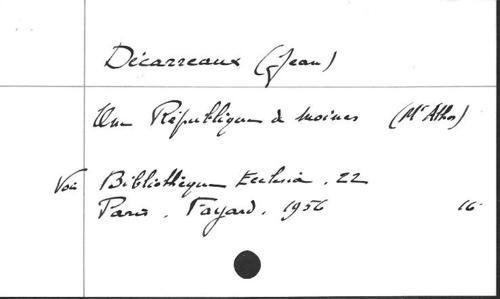 Décarreaux (Jean)
Une République de moines (Mt Athos)
Voir Bibliothèque Ecclesia. 22
Paris. Fayard. 1956 16